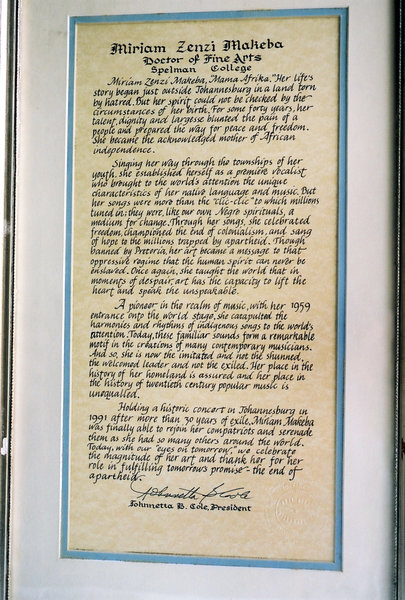 Miriam Zenzi Makeba
Doctor of Fine Arts
Spelman College
Miriam Zenzi Makeba, "Mama Afrika." Her life's
story began just outside Johannesburg in a land torn
by hatred. But her spirit could not be checked by the
circumstances of her birth. For some forty years, her
talent, dignity and largesse blunted the pain of a
people and prepared the way for peace and freedom.
She became the acknowledged mother of African
independence.
Singing her way through the townships of her
youth, she established herself as a premiere vocalist
who brought to the world's attention the unique
characteristics of her native language and music. But
her songs were more than the "clic-clic" to which millions
tuned in; they were, like our own Negro spirituals, a
medium for change. Through her songs, she celebrated
freedom, championed the end of colonialism, and sang
of hope to the millions trapped by apartheid. Though
banned by Pretoria, her art became a message to that
oppressive regime that the human spirit can never be
enslaved. Once again, she taught the world that in
moments of despair, art has the capacity to lift the
heart and speak the unspeakable.
A pioneer in the realm of music, with her 1959
entrance onto the world stage, she catapulted the
harmonies and rhythms of indigenous songs to the world's
attention. Today, these familiar sounds form a remarkable
motif in the creations of many contemporary musicians.
And so, she is now the imitated and not the shunned,
the welcomed leader and not the exiled. Her place in the
history of her homeland is assured and her place in
the history of twentieth century popular music is
unequalled.
Holding a historic concert in Johannesburg in
1991 after more than 30 years of exile, Miriam Makeba
was finally able to rejoin her compatriots and serenade
them as she had so many others around the world.
Today, with our "eyes on tomorrow", we celebrate
the magnitude of her art and thank her for her
role in fulfilling tomorrow's promise - the end of
apartheid.
Johnnetta B. Cole
Johnnetta B. Cole, President